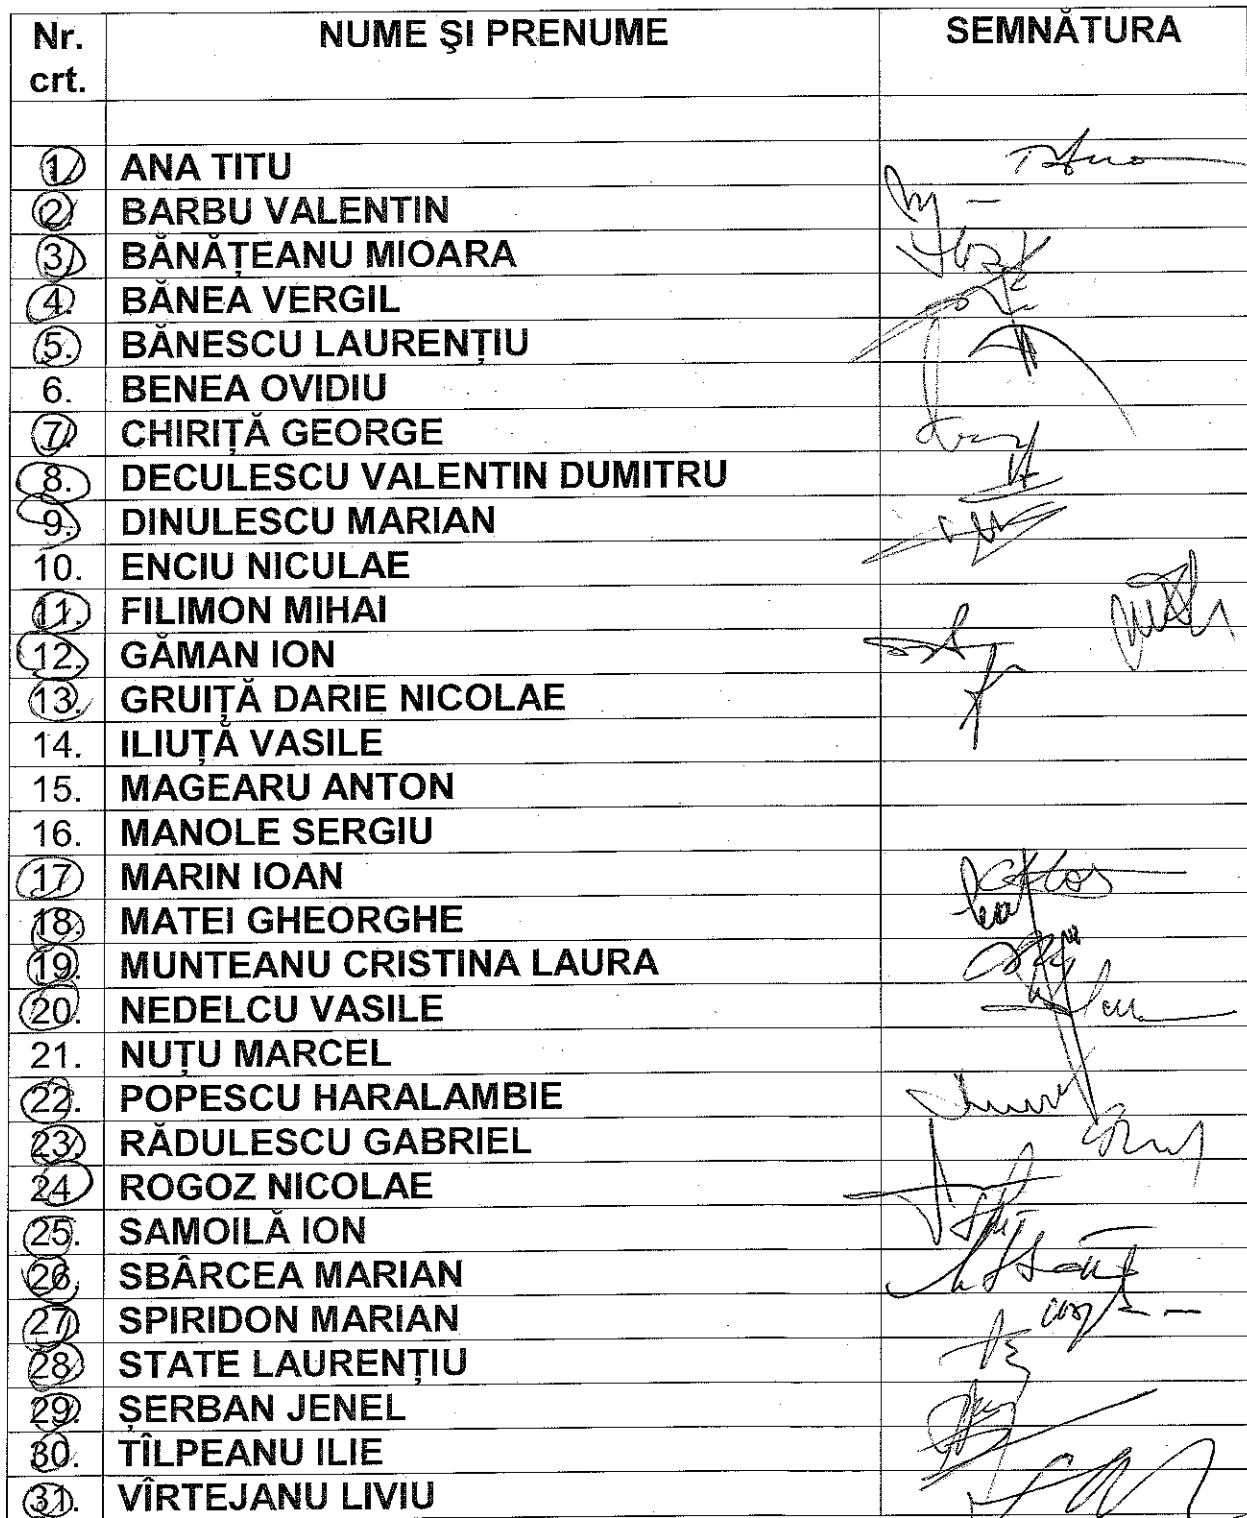 Nr. crt. NUME ŞI PRENUME SEMNĂTURA
1. ANA TITU
2. BARBU VALENTIN
3. BĂNĂȚEANU MIOARA
4. BĂNEA VERGIL
5. BĂNESCU LAURENȚIU
6. BENEA OVIDIU
7. CHIRIȚĂ GEORGE
8. DECULESCU VALENTIN DUMITRU
9. DINULESCU MARIAN
10. ENCIU NICULAE
11. FILIMON MIHAI
12. GĂMAN ION
13. GRUIȚĂ DARIE NICOLAE
14. ILIUȚĂ VASILE
15. MAGEARU ANTON
16. MANOLE SERGIU
17. MARIN IOAN
18. MATEI GHEORGHE
19. MUNTEANU CRISTINA LAURA
20. NEDELCU VASILE
21. NUȚU MARCEL
22. POPESCU HARALAMBIE
23. RĂDULESCU GABRIEL
24. ROGOZ NICOLAE
25. SAMOILĂ ION
26. SBÂRCEA MARIAN
27. SPIRIDON MARIAN
28. STATE LAURENȚIU
29. ȘERBAN JENEL
30. TÎLPEANU ILIE
31. VÎRTEJANU LIVIU